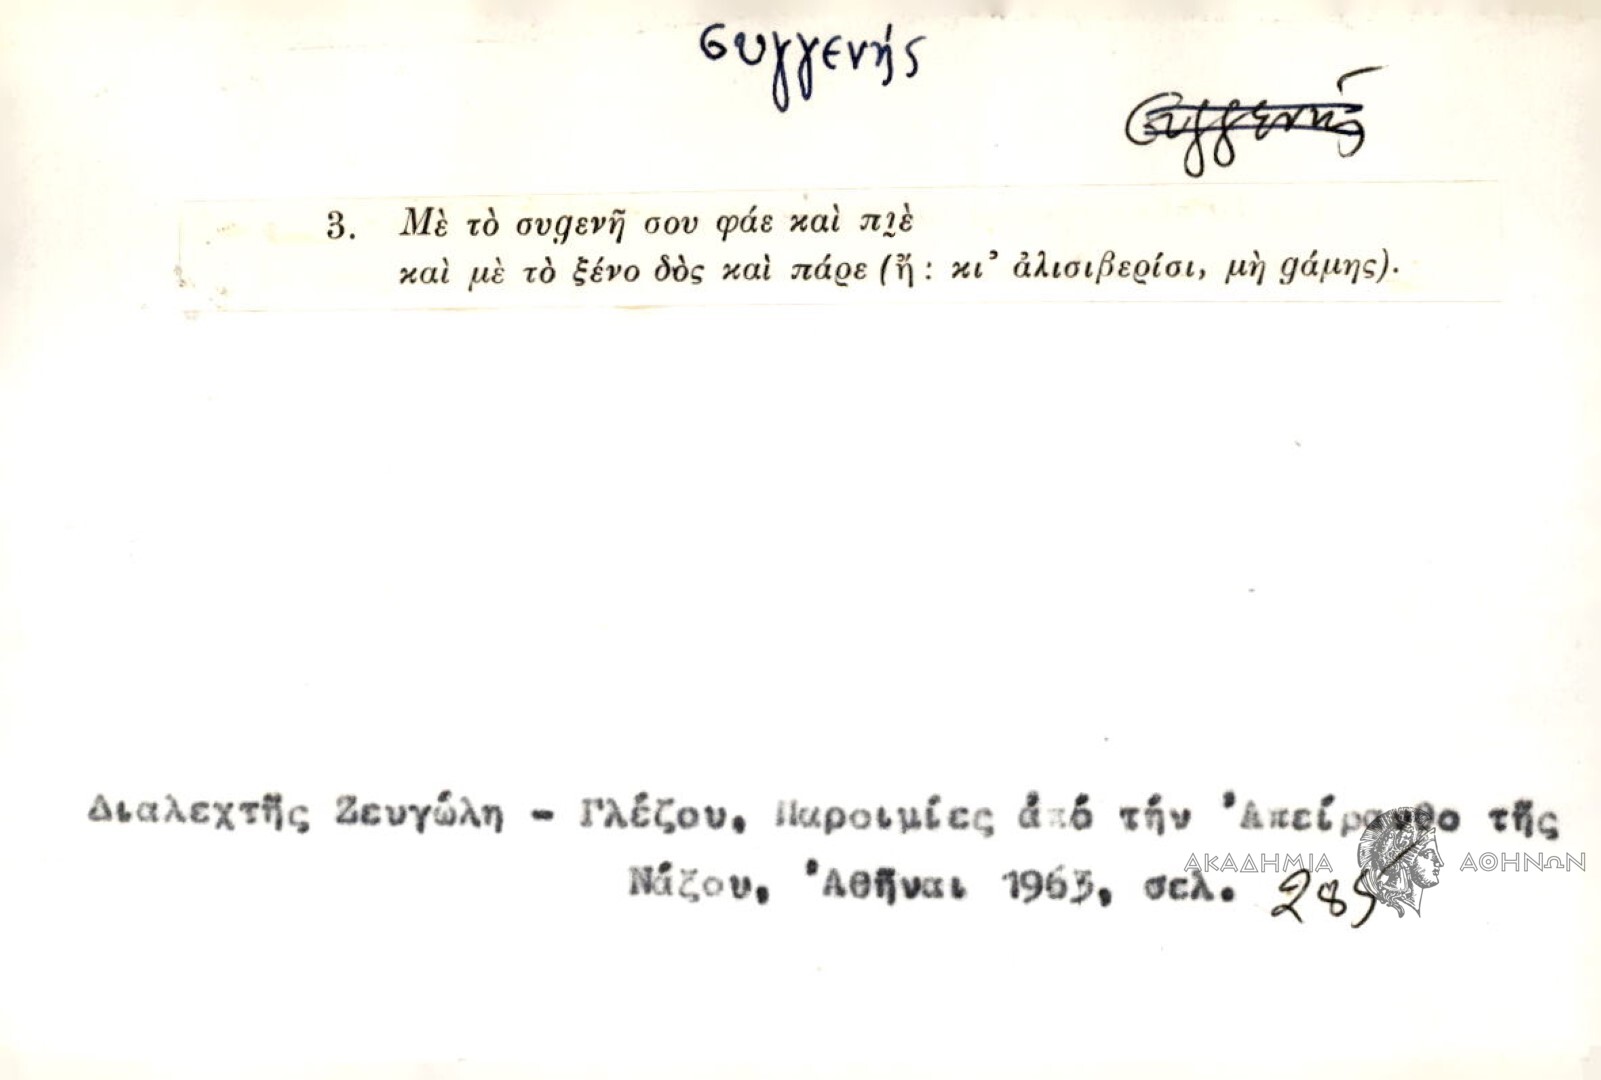 συγγενής
συγγενής
3. Μὲ τὸ συgενῆ σου φάε καὶ πιὲ
καὶ μὲ τὸ ξένο δὸς καὶ πάρε (ἤ : κι’ ἀλισιβερίσι, μὴ gάμης).
Διαλεχτῆς Ζευγώλη - Γλέζου, Παροιμίες ἀπό τήν Ἀπείρανθο τῆς
Νάξου, Ἀθῆναι 1963, σελ. 285
ΑΚΑΔΗΜΙΑ ΑΘΗΝΩΝ